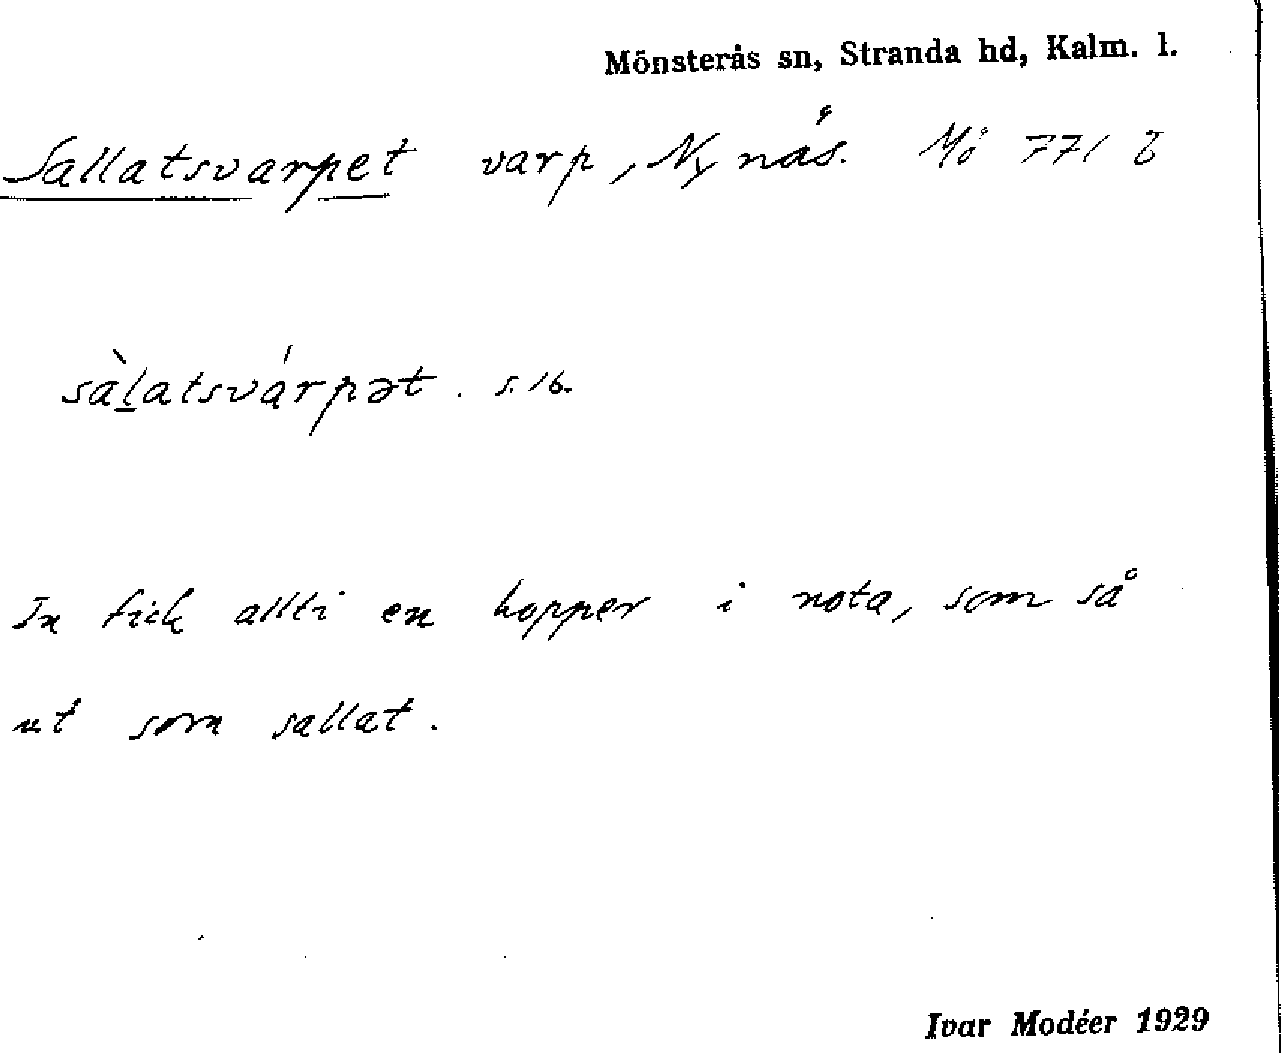 Mönsterås sn, Stranda hd, Kalm. l.
Sallatsvarpet varp, Nynäs. Mö 771 b
sàlatsvárpət. s. 16.
In fick allti en hopper i nota, som så
ut som sallat.
Ivar Modéer 1929